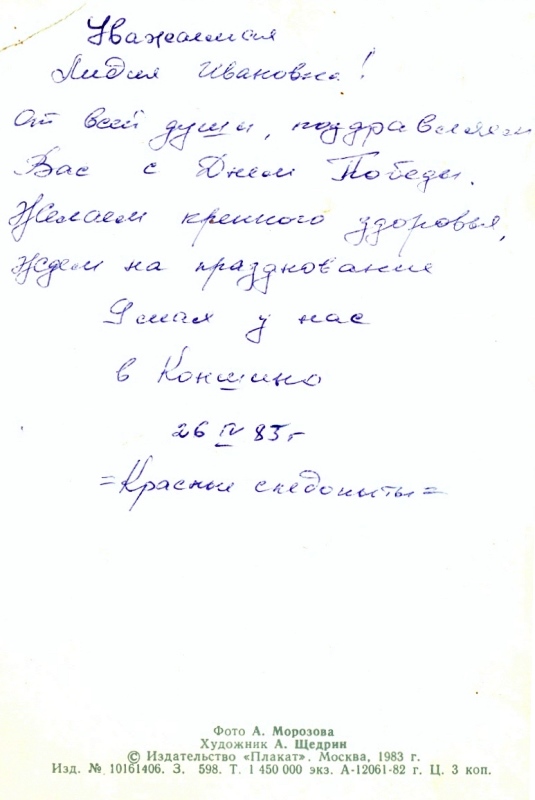 Уважаемая
Лидия Ивановна!
От всей души, поздравляем
Вас с Днем Победы.
Желаем крепкого здоровья,
Ждем на празднование
9 мая у нас
в Коншино
26 IV 85 г
=Красные следопыты=
Фото А. Морозова
Художник А. Щедрин
© Издательство «Плакат». Москва, 1983 г.
Изд. № 10161406. З. 598. Т. 1 450 000 экз. А-12061-82 г. Ц. 3 коп.